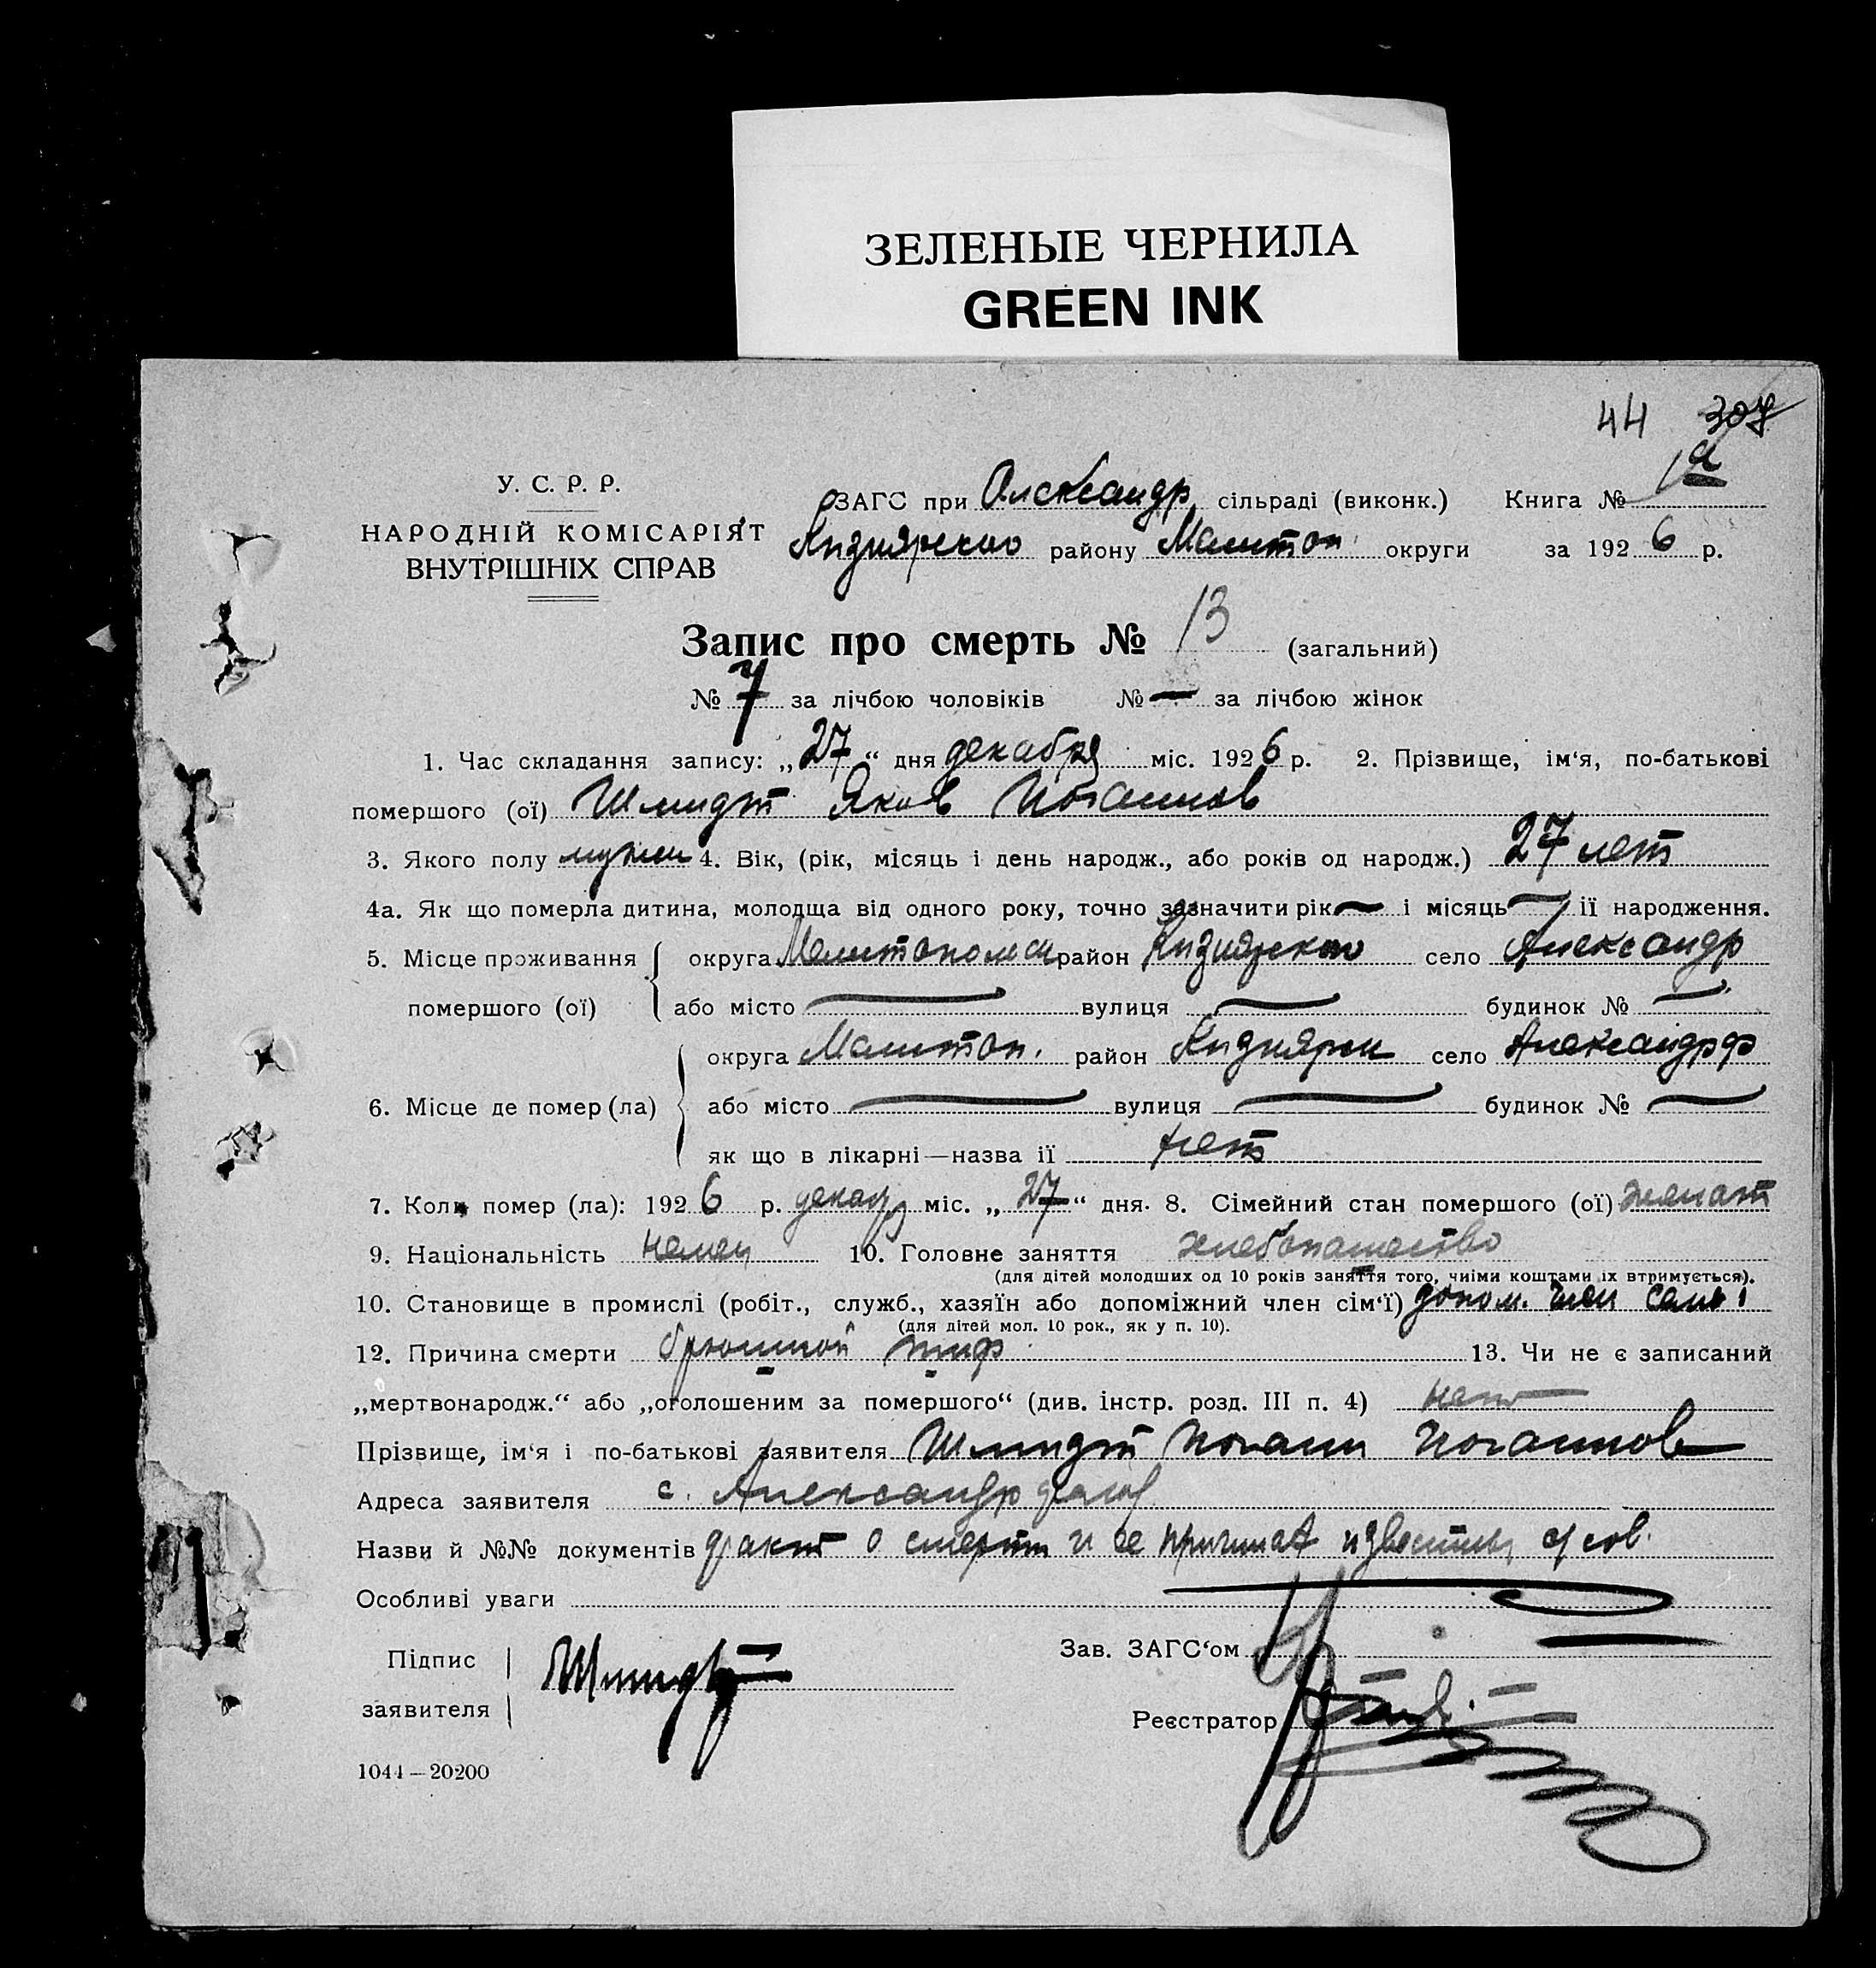 ЗЕЛЕНЫЕ ЧЕРНИЛА
GREEN INK
44 307
У. С. Р. Р.
НАРОДНІЙ КОМІСАРІЯТ
ВНУТРІШНІХ СПРАВ
ЗАГС при Александр сільраді (виконк.) Книга № 1а
района Мелитоп округи за 192 6 р.
Запис про смерть № 13 (загальний)
№ 7 за лічбою чоловіків № — за лічбою жінок
1. Час складання запису: „27“ дня декабря міс. 1926 р. 2. Прізвище, ім‘я, по-батькові
помершого (ої) Шмидт Яков Иоганнов
3. Якого полу мужск 4. Вік, (рік, місяць і день народж., або років од народж.) 27 лет
4а. Як що померла дитина, молодща від одного року, точно зазначити рік — і місяць — її народження.
5. Місце проживання округа район село Александр
помершого (ої) або місто — вулиця — будинок № —
округа Мелитоп. район село Александрф
6. Місце де помер (ла) або місто — вулиця — будинок № —
як що в лікарні—назва її нет
7. Коли помер (ла): 1926 р. декабр міс. „27“ дня. 8. Сімейний стан помершого (ої) женат
9. Національність немец 10. Головне заняття хлебопашество
(для дітей молодших од 10 років заняття того, чиїми коштами їх втримується).
10. Становище в промислі (робіт., служб., хазяїн або допоміжний член сім‘ї) допом. член семьі
(для дітей мол. 10 рок., як у п. 10).
12. Причина смерти брюшной тиф 13. Чи не є записаний
„мертвонародж.“ або „оголошеним за помершого“ (див. інстр. розд. III п. 4) нет
Прізвище, ім‘я і по-батькові заявителя Шмидт Иоганн Иоганнов
Адреса заявителя с.
Назви й №№ документів факт о смерти и ее причинах
Особливі уваги
Підпис Зав. ЗАГС‘ом
заявителя Шмидт
Реєстратор
1044—20200